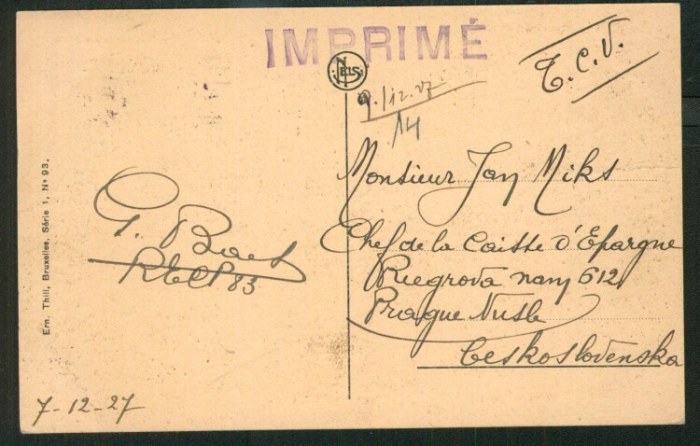 IMPRIMÉ
NELS
T.C.V.
9./12.27
14
Monsieur Jan Miks
Chef de la Caisse d'Epargne
Riegrova nam 612
Prague Nusle
Československa
G. Baes
83
7-12-27
Ern. Thill, Bruxelles, Série 1, N° 93.